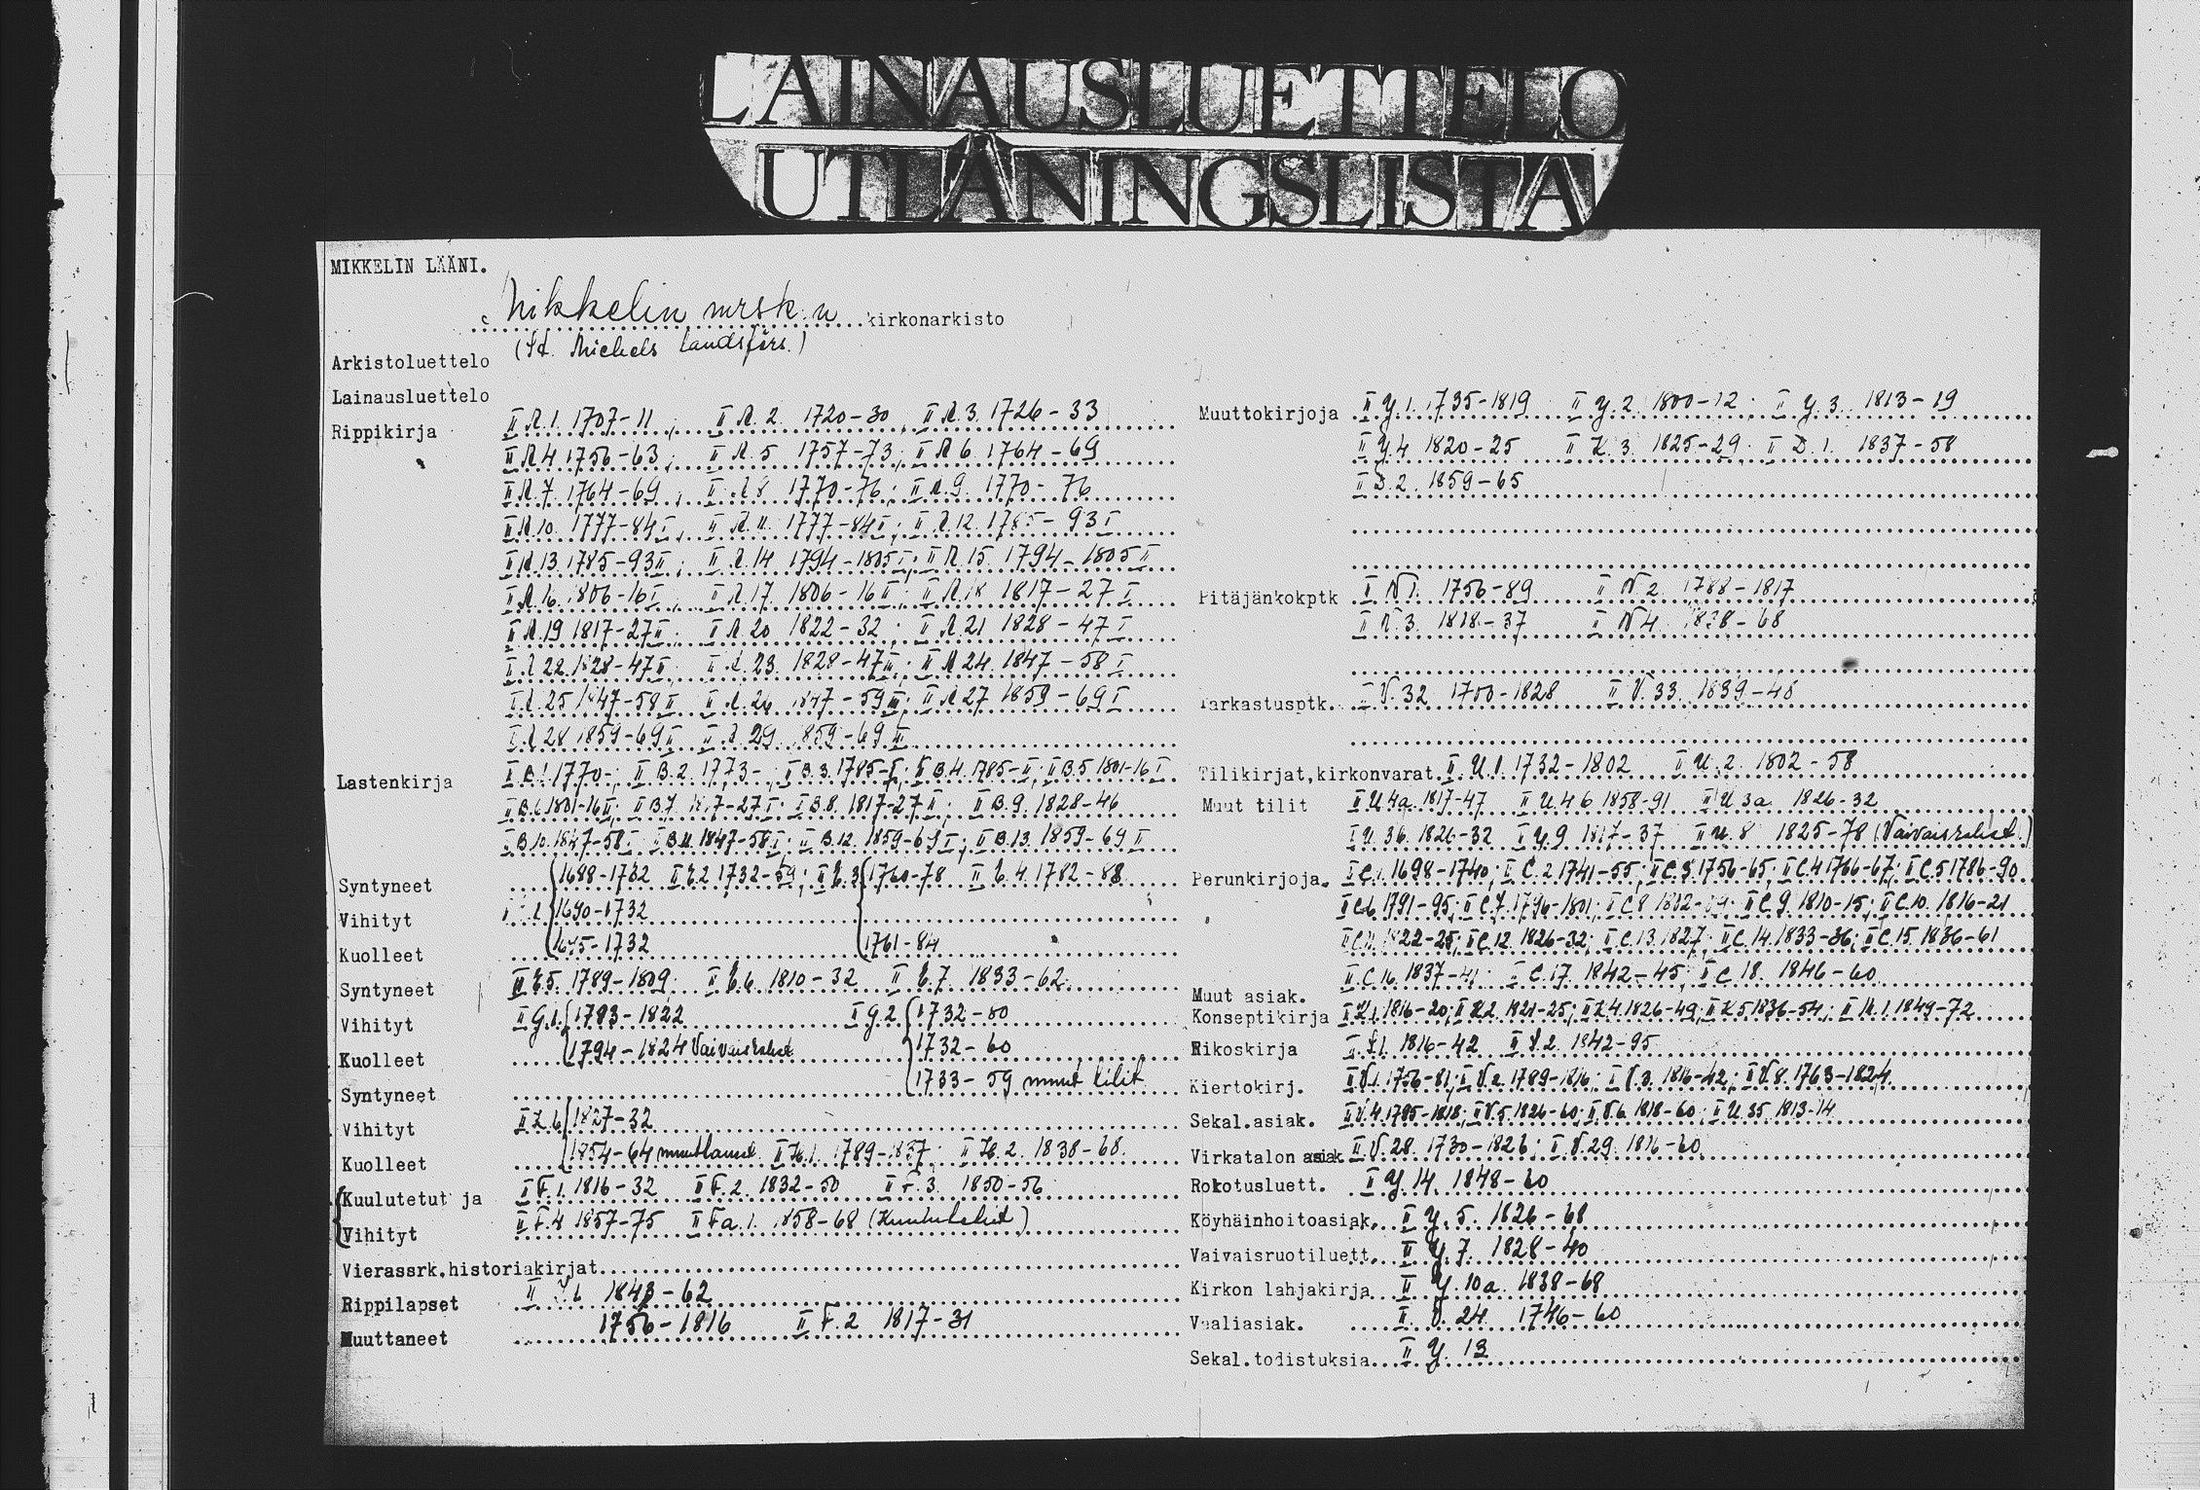 LAINAUSLUETTELO
UTLÅNINGSLISTA
MIKKELIN LÄÄNI.
Mikkelin mrsk:n kirkonarkisto
(St. Michels landsförs.)
Arkistoluettelo
Lainausluettelo
Rippikirja II A.1. 1707-11, II A.2. 1720-30, II A.3. 1726-33
II A4 1756-63; II A.5 1757-73; II A 6. 1764-69
II A.7. 1764-69, II A 8 1770-76; II A.9. 1770-76
II A.10. 1777-84 I, II A.11. 1777-84 I; II A.12. 1785-93 I
II A.13. 1785-93 II; II A.14 1794-1805 I; II A.15. 1794-1805 II
II A.16. 1806-16 I; II A.17. 1806-16 II; II A.18 1817-27 I
II A.19 1817-27 II. II A.20 1822-32; II A.21 1828-47 I
II A 22. 1828-47 II; II A.23. 1828-47 III; II A 24. 1847-58 I
II A.25 1847-58 II II A.26 1847-59 III; II A 27 1859-69 I
II A 28 1859-69 II II A 29 1859-69 III
Lastenkirja II B.1. 1770-; II B.2. 1773-; II B.3. 1785-I; II B.4. 1785-II; II B.5 1801-16 I
II B.6. 1801-16 II; II B.7. 1817-27 I; II B.8. 1817-27 II; II B.9. 1828-46
II B.10. 1847-58 I II B.11. 1847-58 I; II B.12. 1859-69 I; II B.13. 1859-69 II
Syntyneet 1688-1732 1732-59; 1760-78 1782-88
Vihityt 1690-1732
Kuolleet 1695-1732 1761-84
Syntyneet 1789-1809 1810-32 1833-62
Vihityt II G.1. 1793-1822 II G.2 1732-80
Kuolleet 1794-1824 Vaivaisrahat 1732-60
Syntyneet 1733-59 muut tilit
Vihityt 1827-32
Kuolleet 1854-64 II H.1. 1789-1837; II H.2. 1838-68.
Kuulutetut ja II F.1. 1816-32 II F.2. 1832-50 II F.3. 1850-56
Vihityt II F.4 1857-75 II Fa.1. 1858-68 (Kuulutetut)
Vierassrk.historiakirjat
Rippilapset 1843-62
Muuttaneet 1756-1816 II F.2 1817-31
Muuttokirjoja II Y.1. 1735-1819 II Y.2. 1800-12 II Y.3. 1813-19
II Y.4 1820-25 II K.3. 1825-29 II D.1. 1837-58
II D.2. 1859-65
Pitäjänkokptk II N 1. 1756-89 II N 2. 1788-1817
II N 3. 1818-37 II N 4. 1838-68
Tarkastusptk. II V.32 1700-1828 II V.33. 1839-48
Tilikirjat,kirkonvarat. II U.1. 1732-1802 II U.2. 1802-58
Muut tilit II U.4a. 1817-47 II U.4b 1858-91 II U 3a. 1826-32
II U.3b. 1826-32 II Y.9. 1817-37 II U.8 1825-78 (Vaivaisrahat.)
Perunkirjoja. II C.1. 1698-1740; II C.2 1741-55; II C.3. 1756-65; II C.4 1766-67; II C.5 1786-90
II C.6. 1791-95; II C.7. 1796-1801; II C.8 1802-09; II C.9. 1810-15; II C.10. 1816-21
II C.11. 1822-25; II C.12. 1826-32; II C.13. 1827; II C.14. 1833-36; II C.15. 1836-61
II C.16. 1837-41; II C.17. 1842-45; II C.18. 1846-60
Muut asiak.
Konseptikirja II K.1. 1816-20; II K.2. 1821-25; II K.4. 1826-49; II K.5. 1836-54; II M.1. 1849-72
Rikoskirja 1816-42 1842-95
Kiertokirj. II V.1. 1756-81; II V.2. 1789-1816; II V.3. 1816-42; II V.8. 1763-1824
Sekal.asiak. II V.4. 1785-1818; II V.5. 1826-60; II V.6. 1818-60; II U.35 1813-14
Virkatalon asiak II V.28. 1730-1826; II V.29. 1816-60
Rokotusluett. II Y.14. 1848-60
Köyhäinhoitoasiak. II Y.5. 1826-68
Vaivaisruotiluett. II Y.7. 1828-40
Kirkon lahjakirja II Y.10a. 1838-68
Vaaliasiak. II V.24. 1746-60
Sekal.todistuksia. II Y.13